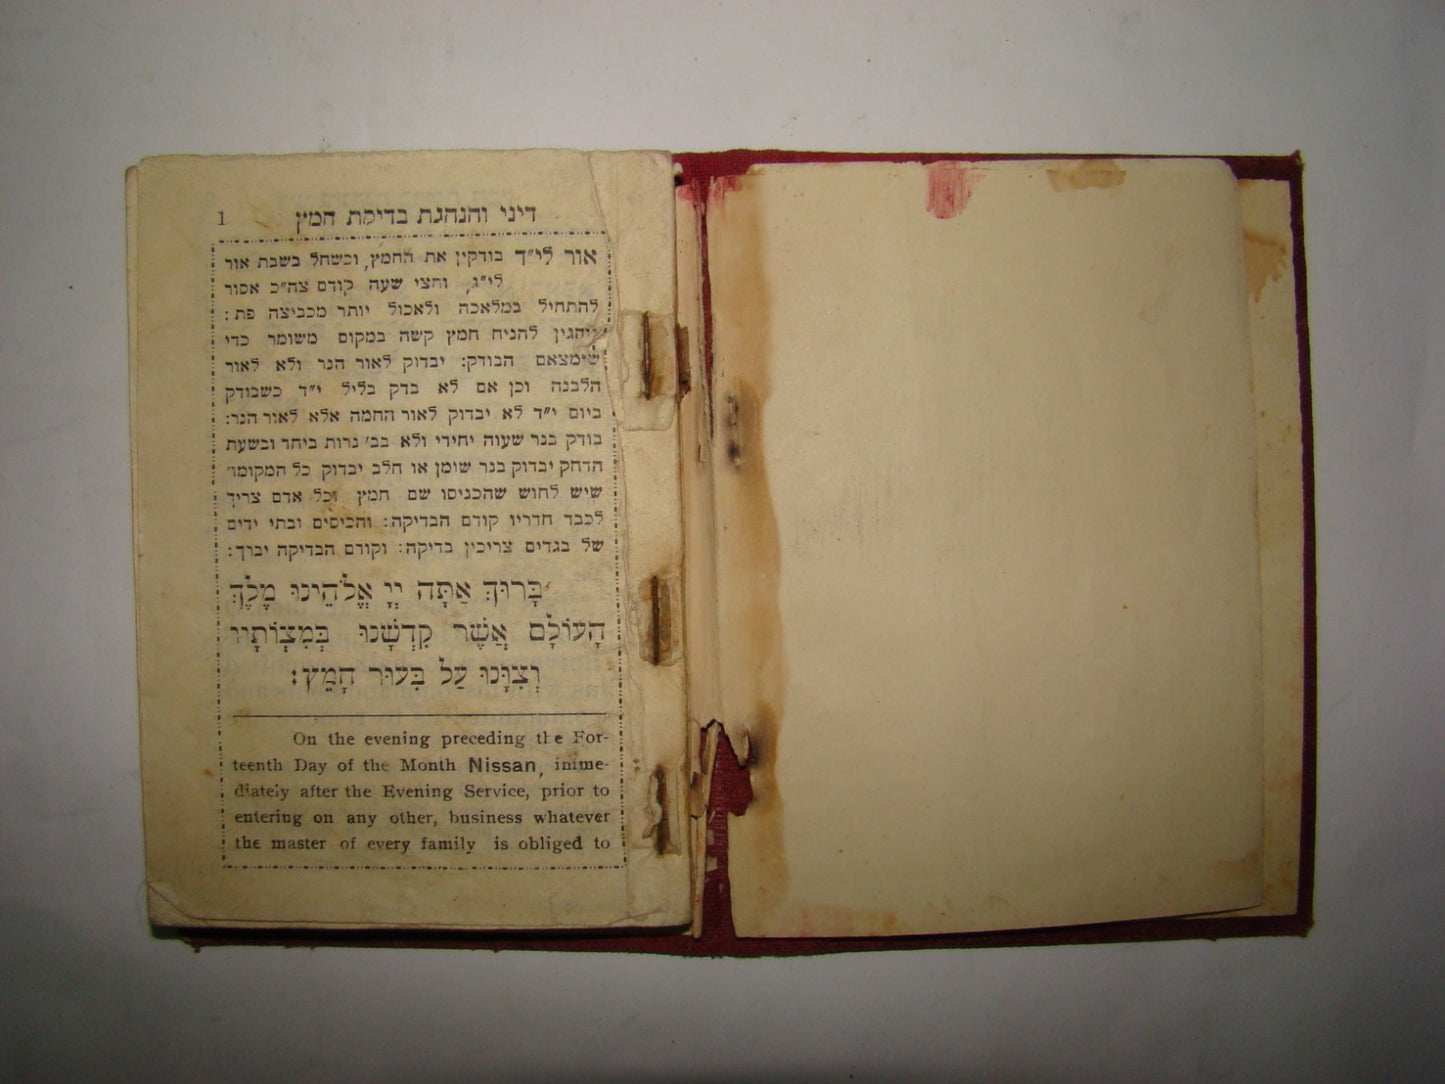 דיני והנהגת בדיקת חמץ 1
אור לי״ד בודקין את החמץ, וכשחל בשבת אור
לי״ג, וחצי שעה קודם צה״כ אסור
להתחיל במלאכה ולאכול יותר מכביצה פת:
להניח חמץ קשה במקום משומר כדי
שימצאם הבודק: יבדוק לאור הנר ולא לאור
הלבנה וכן אם לא בדק בליל י״ד כשבודק
ביום י״ד לא יבדוק לאור החמה אלא לאור הנר:
בודק בנר שעוה יחידי ולא בב׳ נרות ביחד ובשעת
הדחק יבדוק בנר שומן או חלב יבדוק כל המקומו׳
שיש לחוש שהכניסו שם חמץ וכל אדם צריך
לכבד חדריו קודם הבדיקה: והכיסים ובתי ידים
של בגדים צריכין בדיקה: וקודם הבדיקה יברך:
בָּרוּךְ אַתָּה יְיָ אֱלֹהֵינוּ מֶלֶךְ
הָעוֹלָם אֲשֶׁר קִדְשָׁנוּ בְּמִצְוֹתָיו
וְצִוָּנוּ עַל בִּעוּר חָמֵץ:
On the evening preceding the For-
teenth Day of the Month Nissan, imme-
diately after the Evening Service, prior to
entering on any other, business whatever
the master of every family is obliged to